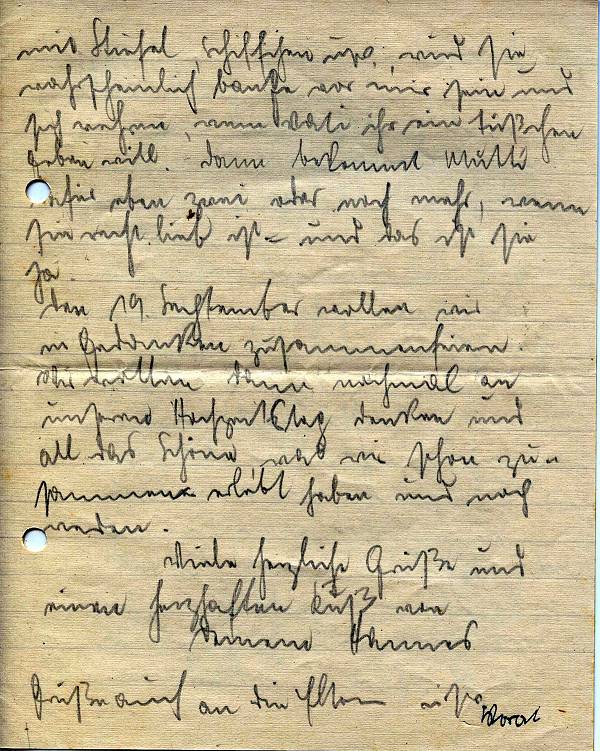 mit Stiefel, Schiffchen usw., wird sie
wahrscheinlich bange vor mir sein und
sich wehren, wenn Vati ihr ein Küßchen
geben will. Dann bekommt Mutti
dafür eben zwei oder noch mehr, wenn
sie recht lieb ist – und das ist sie
ja.
Den 19. September wollen wir
in Gedanken zusammen feiern.
Wir wollen dann nochmal an
unseren Hochzeitstag denken und
all das Schöne, was wir schon zu-
sammen erlebt haben und noch
werden.
Viele herzliche Grüße und
einen herzhaften Kuß von
Deinem Hannes
Grüße auch an die Eltern